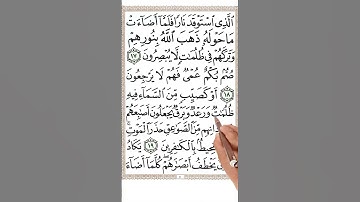 ٱلَّذِي ٱسْتَوْقَدَ نَارًا فَلَمَّآ أَضَآءَتْ
مَا حَوْلَهُۥ ذَهَبَ ٱللَّهُ بِنُورِهِمْ
وَتَرَكَهُمْ فِي ظُلُمَٰتٍ لَّا يُبْصِرُونَ ١٧
صُمُّۢ بُكْمٌ عُمْيٌ فَهُمْ لَا يَرْجِعُونَ
١٨ أَوْ كَصَيِّبٍ مِّنَ ٱلسَّمَآءِ فِيهِ
ظُلُمَٰتٌ وَرَعْدٌ وَبَرْقٌ يَجْعَلُونَ أَصَٰبِعَهُمْ
مِّنَ ٱلصَّوَٰعِقِ حَذَرَ ٱلْمَوْتِ
بِٱلْكَٰفِرِينَ ١٩ يَكَادُ
يَخْطَفُ أَبْصَٰرَهُمْ كُلَّمَآ أَضَآءَ